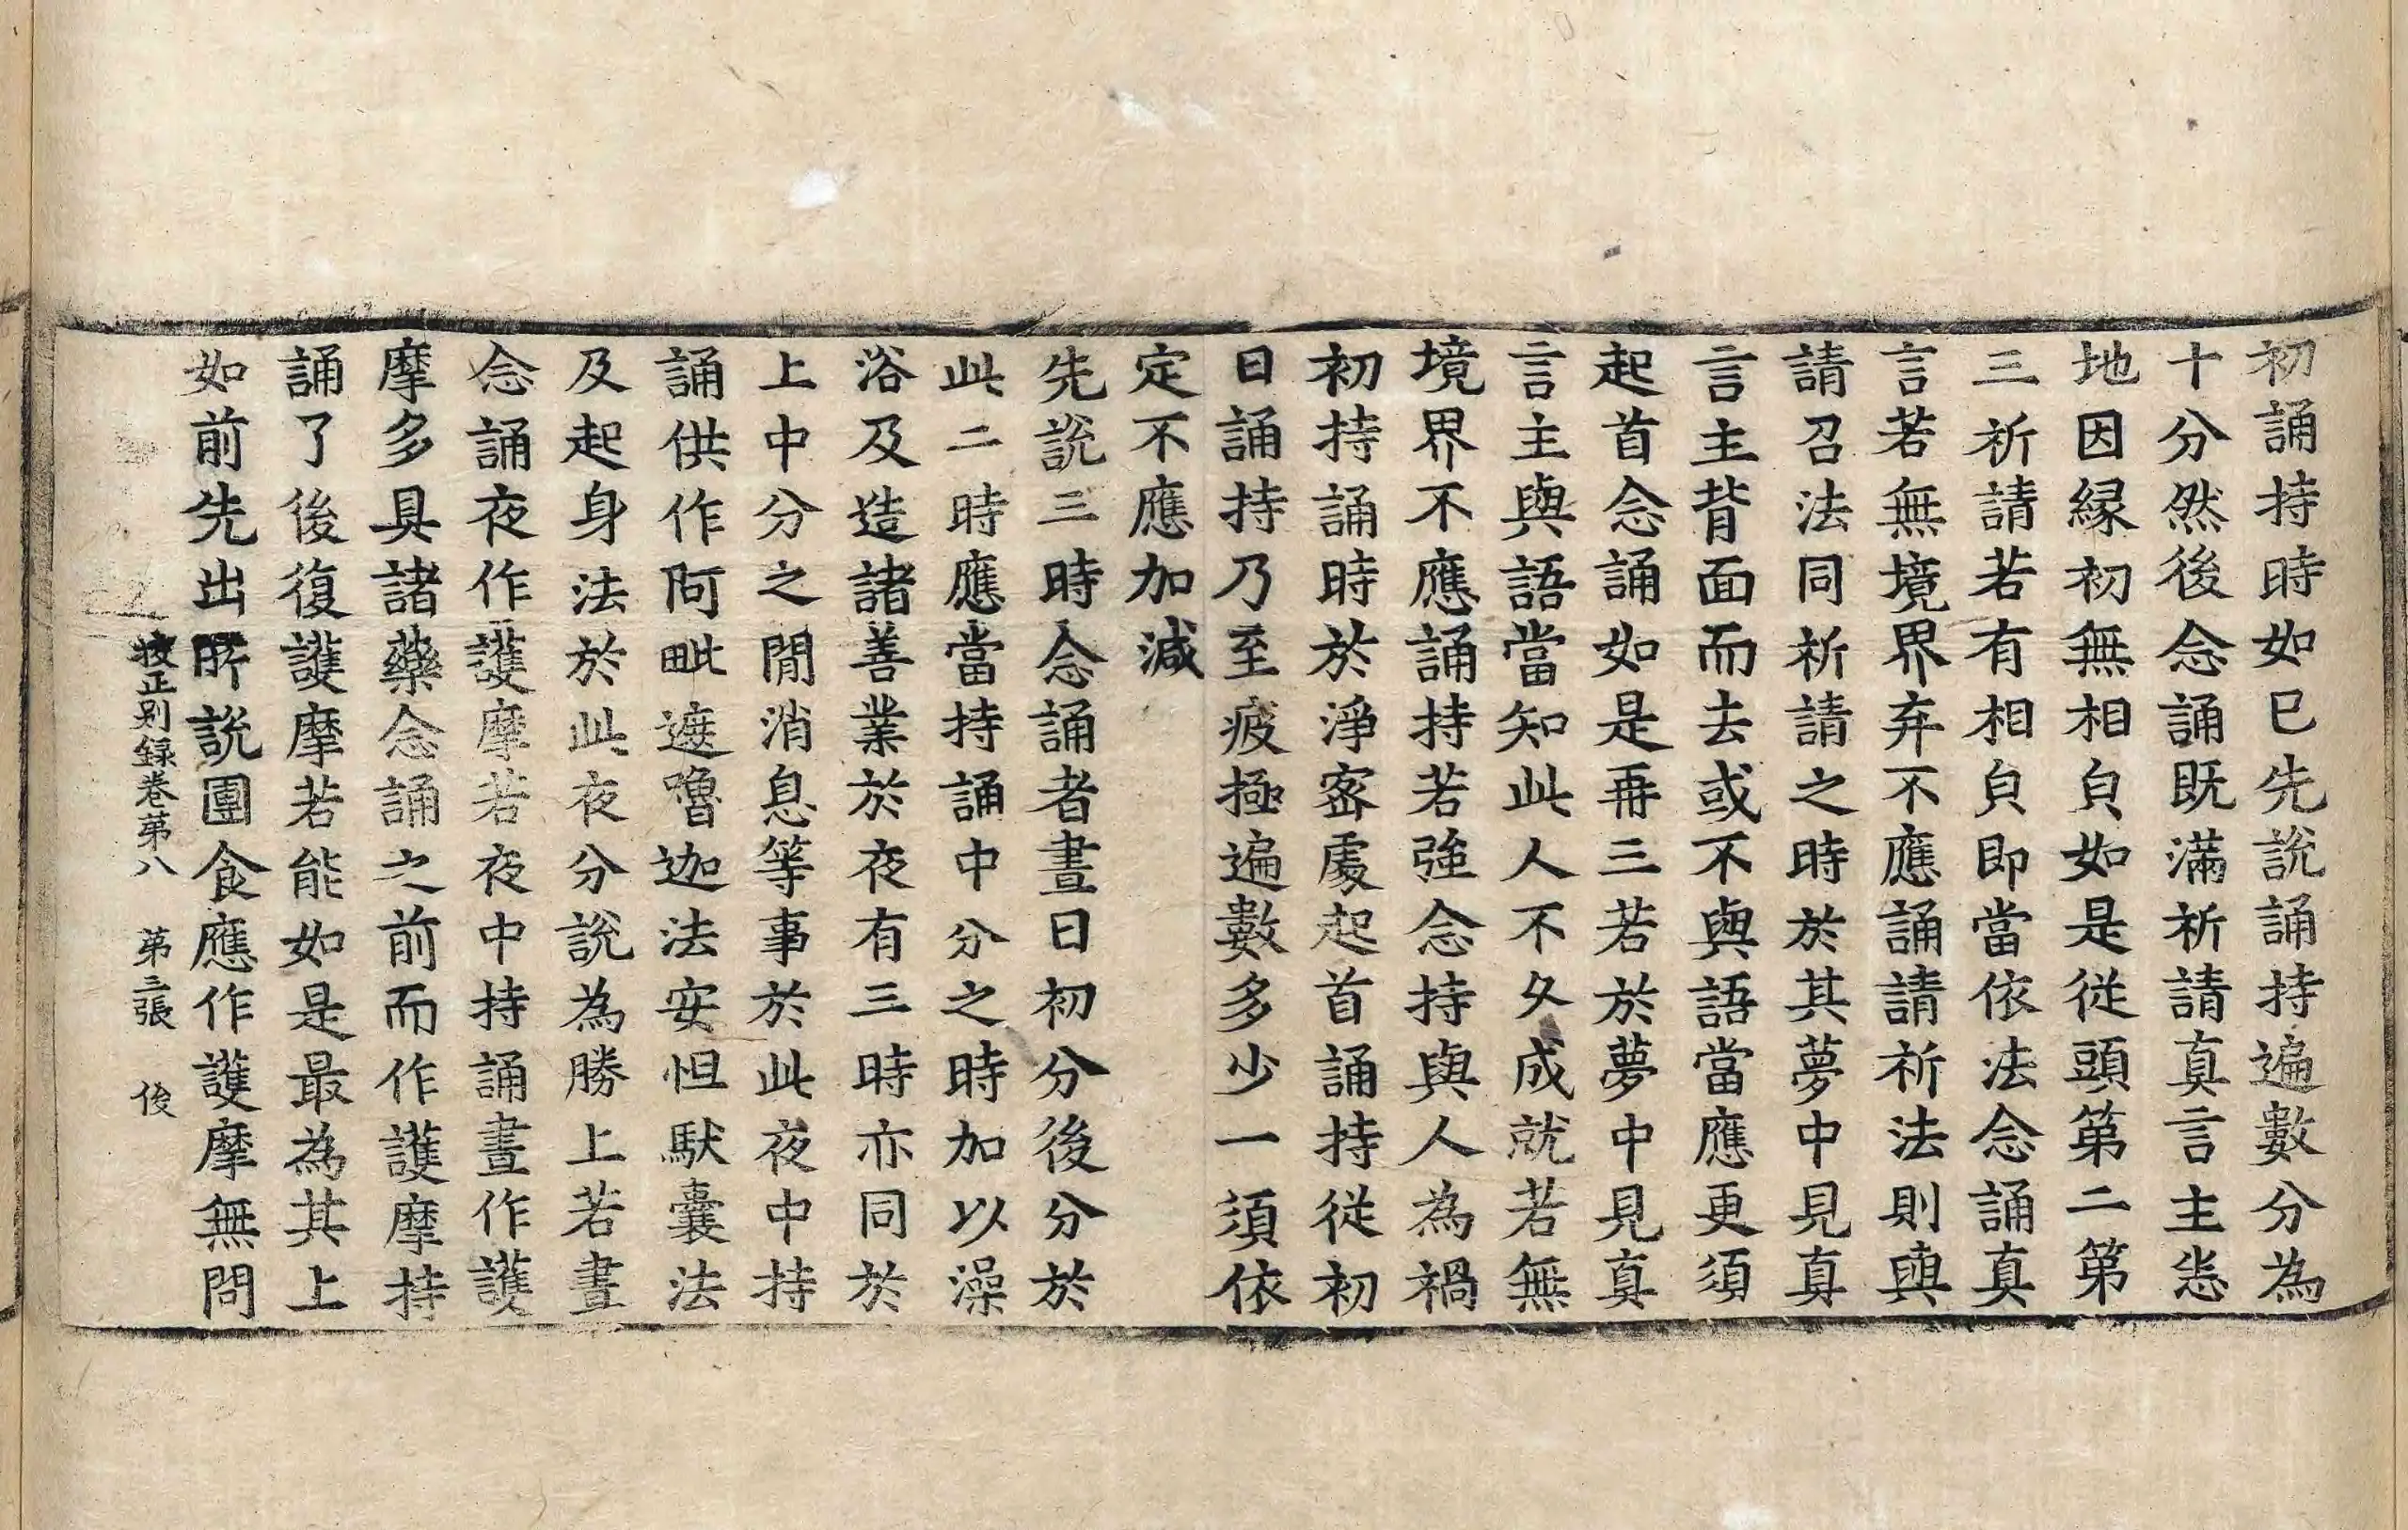 初誦持時如巳先說誦持遍數分為
十分然後念誦既滿祈請真言主恙
地因縁初無相貟如是從頭第二第
三祈請若有相貟即當依法念誦真
言若無境界弃不應誦請祈法則與
請召法同祈請之時於其夢中見真
言主背面而去或不與語當應更須
起首念誦如是再三若於夢中見真
言主與語當知此人不久成就若無
境界不應誦持若強念持與人為禍
初持誦時於淨密處起首誦持從初
日誦持乃至疲極遍數多少一須依
定不應加減
先說三時念誦者晝日初分後分於
此二時應當持誦中分之時加以澡
浴及造諸善業於夜有三時亦同於
上中分之間消息等事於此夜中持
誦供作阿毗遮嚕迦法安怛馱囊法
及起身法於此夜分說為勝上若晝
念誦夜作護摩若夜中持誦晝作護
摩多具諸藥念誦之前而作護摩持
誦了後復護摩若能如是最為其上
如前先出所說團食應作護摩無問
挍正别録卷第八 第三張 俊